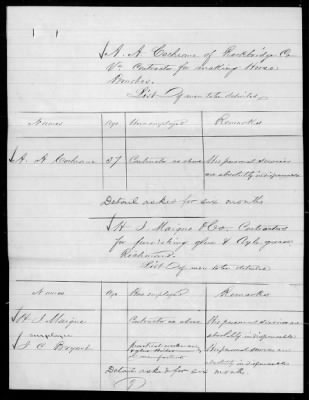 A. A. Cochrane of Rockbridge Co
Va Contractor for making Horse
Brushes.
List of men to be detailed
Names Age How employed Remarks
A. A. Cochrane 37 Contractor as above His personal services
are absolutely indispensable
Detail asked for six months
H. J. Maigne & Co. Contractors
for furnishing glue &
Richmond.
List of men to be detailed
Names Age How employed Remarks
H. J. Maigne Contractor as above His personal services are
absolutely indispensable
employee
J. C. Bryant practical His personal services are
absolutely indispensable
Detail asked for six month